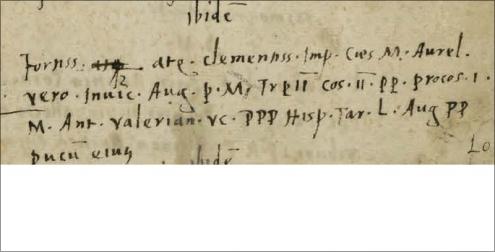 ibidē
Forniss. atq. clementiss. Imp. Cæs M. Aurel.
vero. Invic. Aug. p. M. Tr p II cos. II. pp. procos. I.
M. Ant. Valerian. vc. PPP Hisp. Tar. L. Aug PP
pucū eius
ibidē
Lo